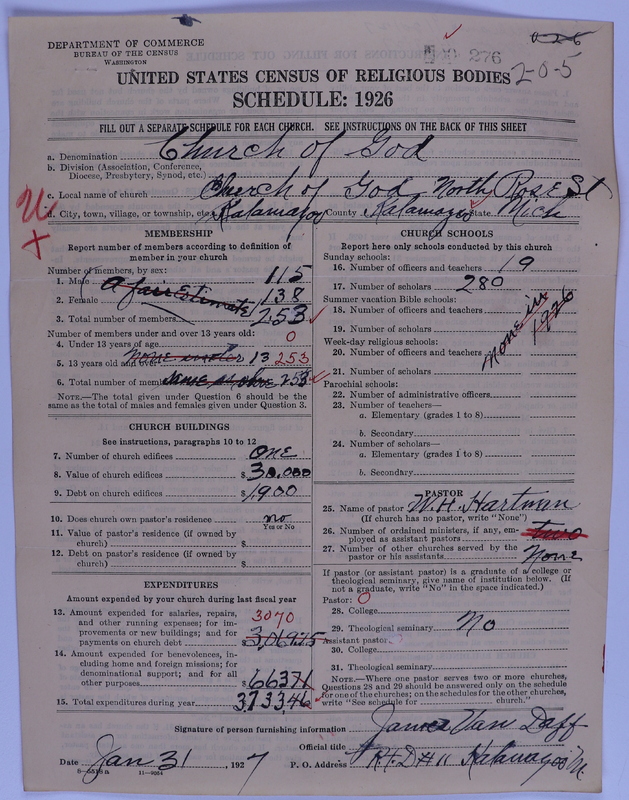 DEPARTMENT OF COMMERCE
BUREAU OF THE CENSUS
WASHINGTON
276
2-0-5
UNITED STATES CENSUS OF RELIGIOUS BODIES
SCHEDULE: 1926
FILL OUT A SEPARATE SCHEDULE FOR EACH CHURCH. SEE INSTRUCTIONS ON THE BACK OF THIS SHEET
a. Denomination Church of God
b. Division (Association, Conference,
Diocese, Presbytery, Synod, etc.)
c. Local name of church Church of God North Rose St
d. City, town, village, or township, etc. Kalamazoo County Kalamazoo State Mich
MEMBERSHIP
Report number of members according to definition of
member in your church
Number of members, by sex:
1. Male 115
2. Female 138
a fair Estimate
3. Total number of members 253
Number of members under and over 13 years old:
4. Under 13 years of age 0
5. 13 years old and over None under 13 253
6. Total number of members same as above 253
NOTE.—The total given under Question 6 should be
the same as the total of males and females given under Question 3.
CHURCH BUILDINGS
See instructions, paragraphs 10 to 12
7. Number of church edifices one
8. Value of church edifices $ 30,000
9. Debt on church edifices $ 1900
10. Does church own pastor's residence no
Yes or No
11. Value of pastor's residence (if owned by
church) $
12. Debt on pastor's residence (if owned by
church) $
EXPENDITURES
Amount expended by your church during last fiscal year
13. Amount expended for salaries, repairs,
and other running expenses; for im-
provements or new buildings; and for
payments on church debt 3070 $ 3,069.75
14. Amount expended for benevolences, in-
cluding home and foreign missions; for
denominational support; and for all
other purposes $ 663.71
15. Total expenditures during year 3733.46
CHURCH SCHOOLS
Report here only schools conducted by this church
Sunday schools:
16. Number of officers and teachers 19
17. Number of scholars 280
Summer vacation Bible schools:
18. Number of officers and teachers
19. Number of scholars
None in 1926
Week-day religious schools:
20. Number of officers and teachers
21. Number of scholars
Parochial schools:
22. Number of administrative officers
23. Number of teachers—
a. Elementary (grades 1 to 8)
b. Secondary
24. Number of scholars—
a. Elementary (grades 1 to 8)
b. Secondary
PASTOR
25. Name of pastor W. H. Hartman
(If church has no pastor, write "None")
26. Number of ordained ministers, if any, em-
ployed as assistant pastors two
27. Number of other churches served by the
pastor or his assistants None
If pastor (or assistant pastor) is a graduate of a college or
theological seminary, give name of institution below. (If
not a graduate, write "No" in the space indicated.)
Pastor: 0
28. College
29. Theological seminary No
Assistant pastor
30. College
31. Theological seminary
NOTE.—Where one pastor serves two or more churches,
Questions 28 and 29 should be answered only on the schedule
for one of the churches; on the schedules for the other churches,
write "See schedule for church."
Signature of person furnishing information James Van Daff
Official title
Date Jan 31, 1927 P. O. Address R.F.D #11 Kalamazoo M.
8—5518a 11—9054